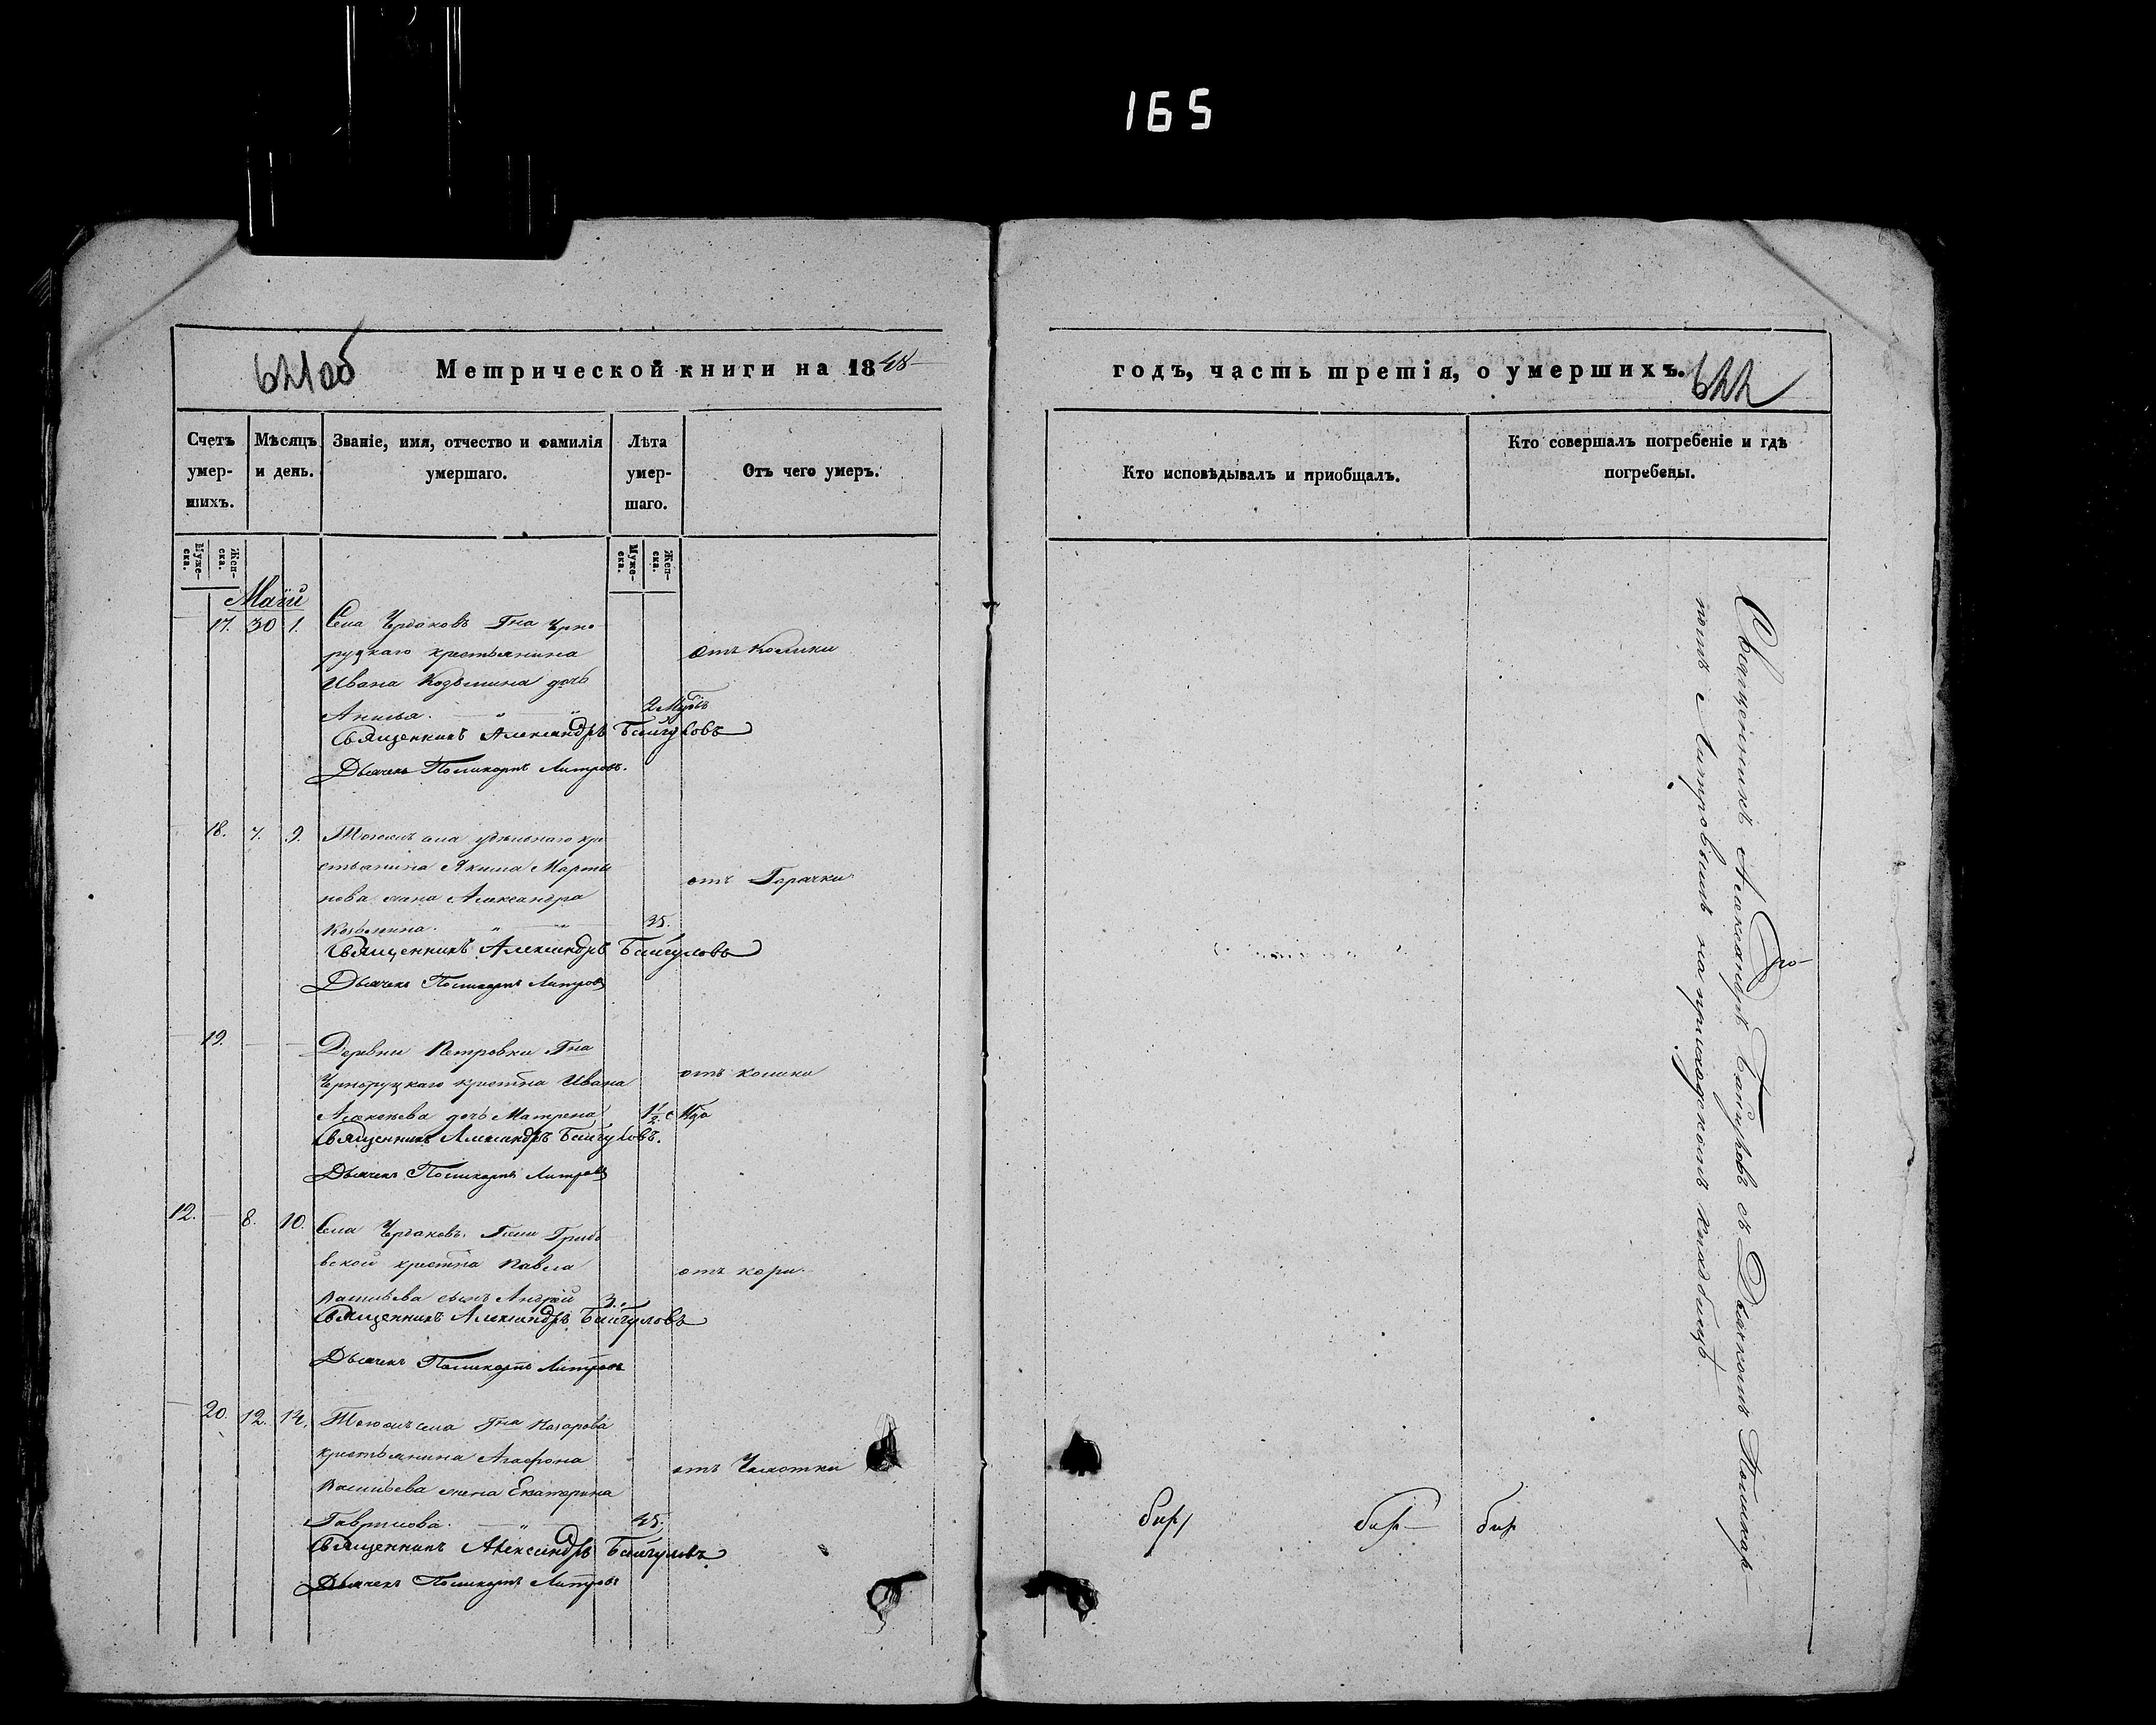 165
621об
Метрической книги на 1848
годъ, часть третія, о умершихъ.
622
Счетъ умер-шихъ.
Мѣсяцъ и день.
Званіе, имя, отчество и фамилія умершаго.
Лѣта умер-шаго.
Отъ чего умеръ.
Кто исповѣдывалъ и пріобщалъ.
Кто совершалъ погребеніе и гдѣ погребены.
Муже-ска.
Жен-ска.
Муже-ска.
Жен-ска.
Маій
17. 30 1. Села Чердаковъ Гна Черно
руцкаго крестьянина
отъ колики
Ивана Козьмина дочь
Анисья.
Священникъ Александръ Байгуловъ
Дьячекъ Поликарпъ Литровъ.
18. 7. 9. Тогожъ села удѣльнаго кре
стьянина Якима Марты
отъ Горячки
нова жена Александра
Козьмина. 35.
Священникъ Александръ Байгуловъ
Дьячекъ Поликарпъ Литровъ
19. Деревни Петровки Гна
Черноруцкаго крестна Ивана
отъ колики
Алексѣева дочь Матрена 1 1/2
Священникъ Александръ Байгуловъ.
Дьячекъ Поликарпъ Литровъ
12. 8. 10. Села Чердаковъ. Грибо
вской крестна Павла
отъ кори.
Васильева сынъ Андрей 3.
Священникъ Александръ Байгуловъ
Дьячекъ Поликарпъ Литровъ
20. 12. 14. Тогожъ села Гна Назарова
крестьянина Агафона
отъ Чахотки
Васильева жена Екатерина
Гаврилова. 45.
Священникъ Александръ Байгуловъ
Дьячекъ Поликарпъ Литровъ
Священникъ Александръ Байгуловъ съ Дьячкомъ Поликар-
помъ Литровымъ на приходскомъ кладбищѣ.